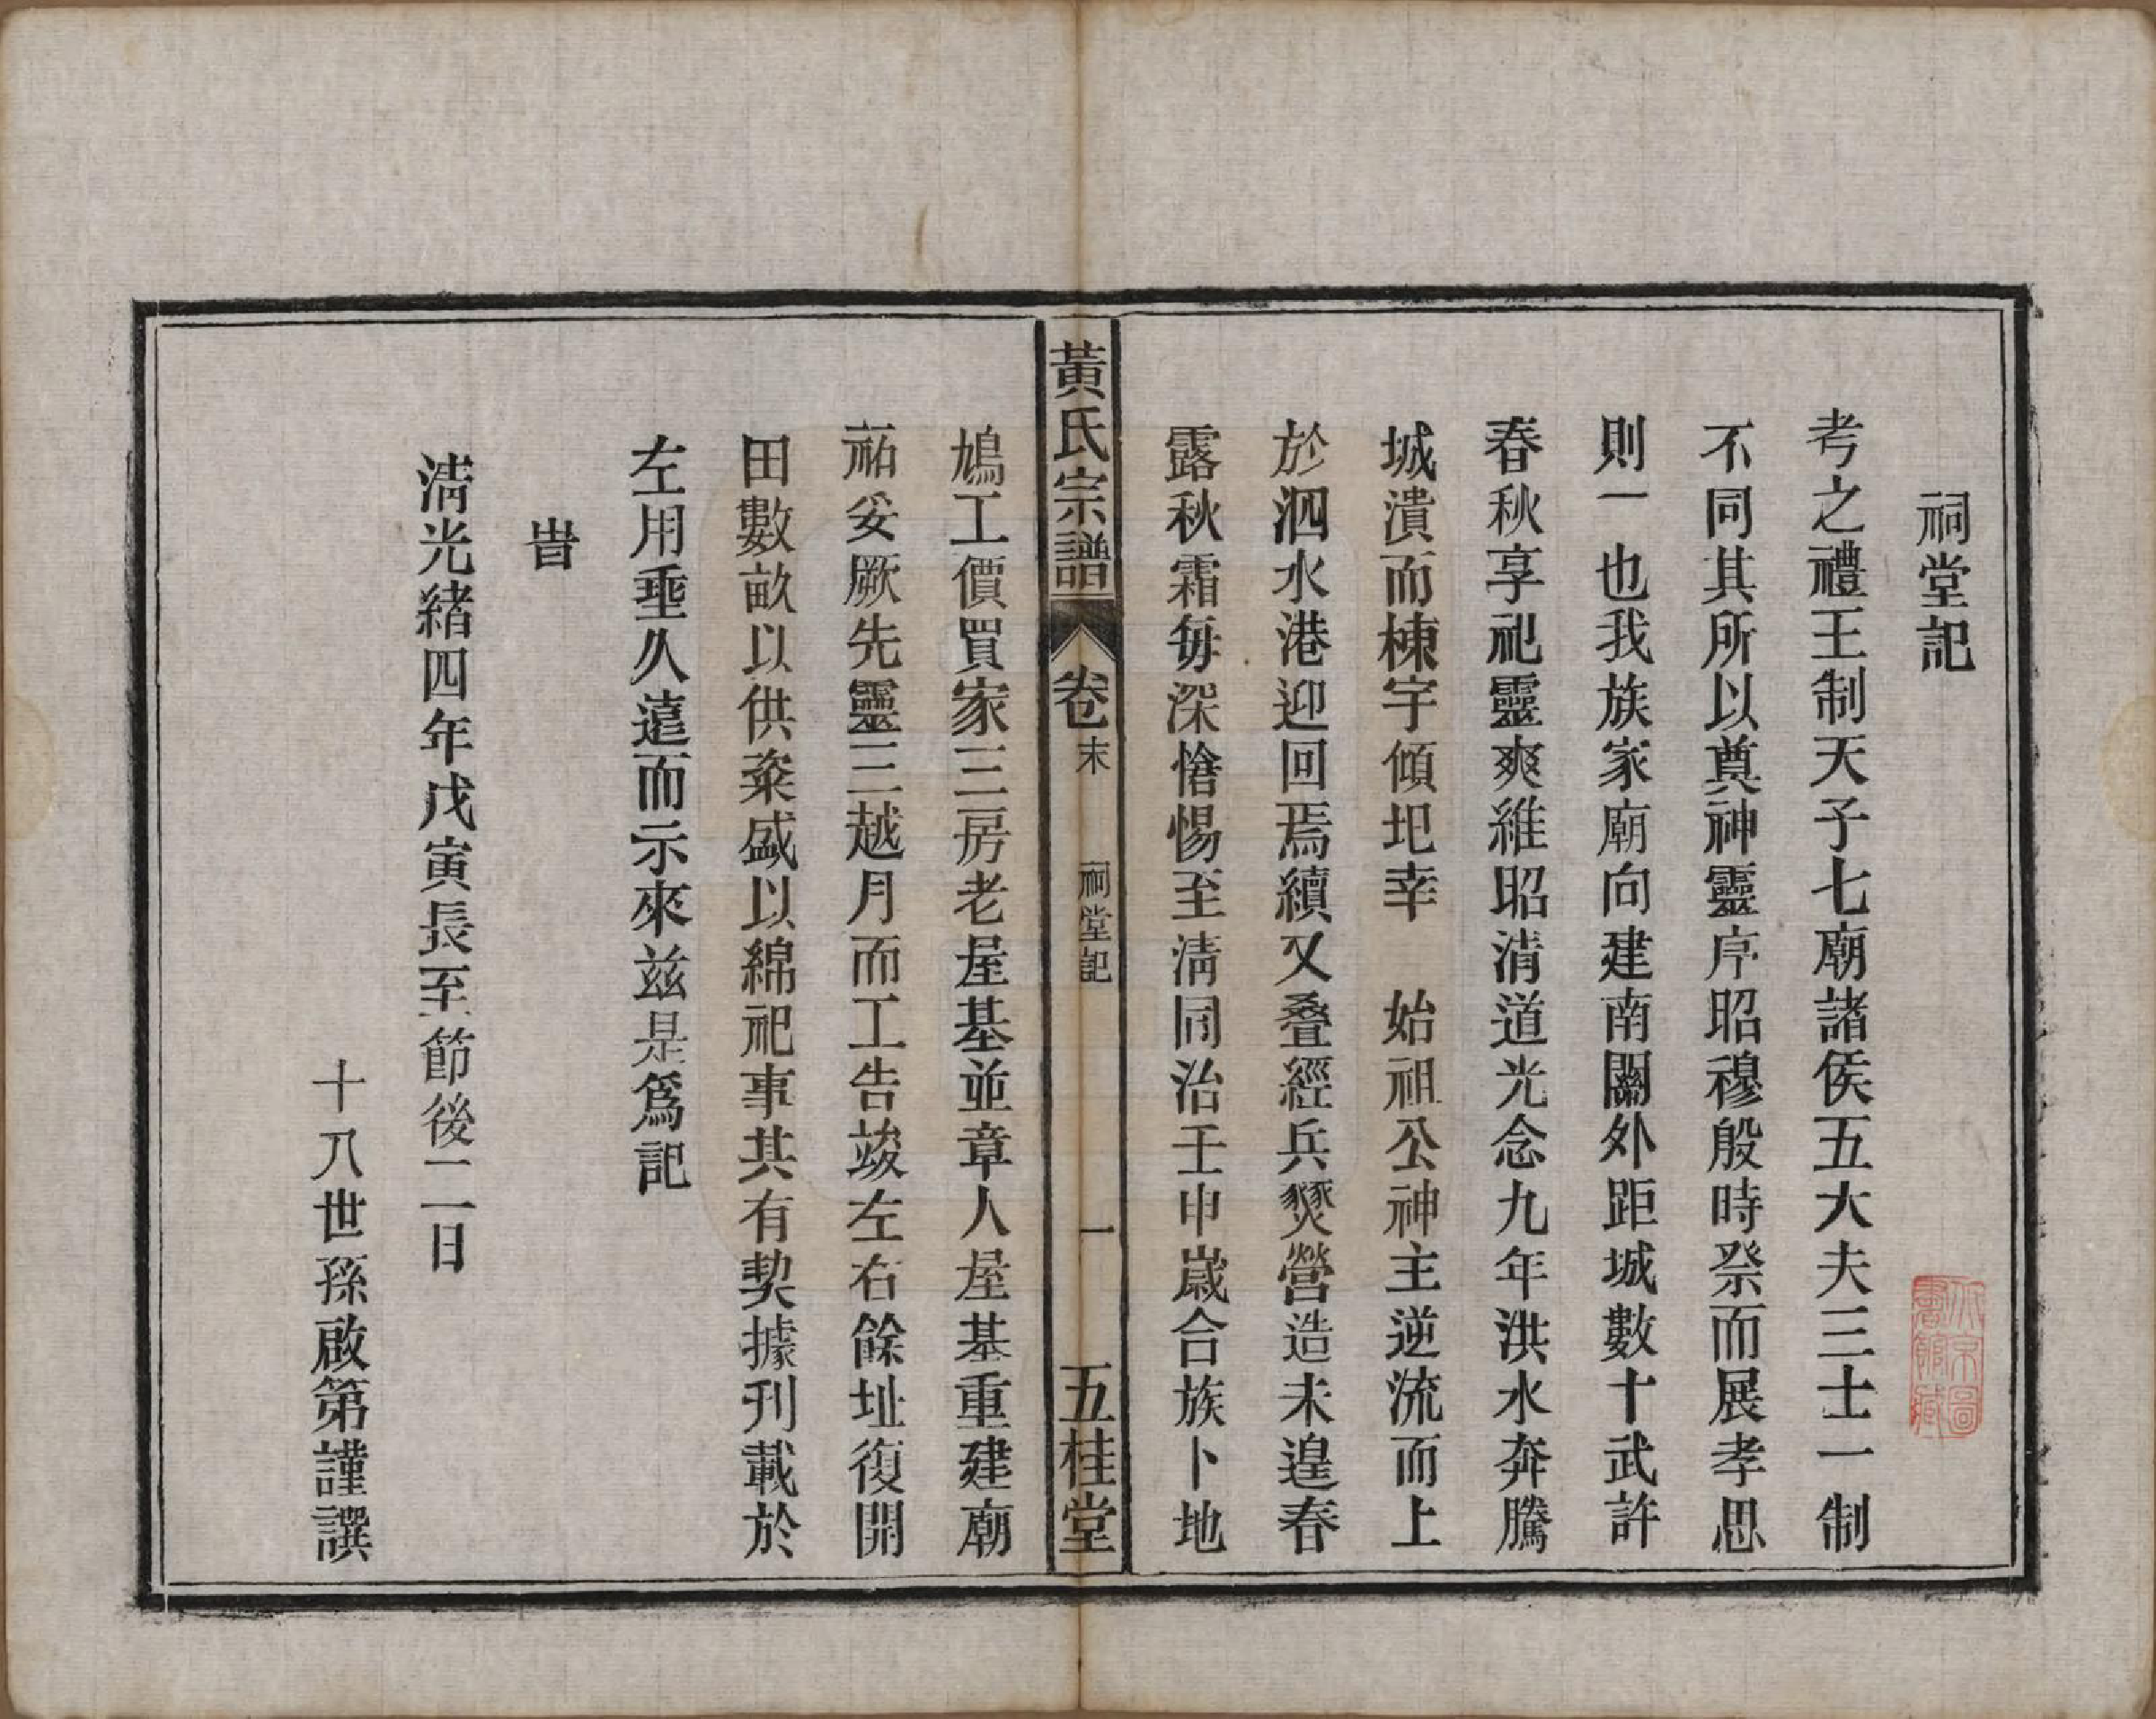 祠堂記
考之禮王制天子七廟諸侯五大夫三士一制
不同其所以奠神靈序昭穆殷時祭而展孝思
則一也我族家廟向建南關外距城數十武許
春秋享祀靈爽維昭清道光念九年洪水奔騰
城潰而棟宇傾圯幸　始祖公神主逆流而上
於泗水港迎回焉續又叠經兵燹營造未遑春
露秋霜每深愴惕至清同治壬申嵗合族卜地
黃氏宗譜　卷末　祠堂記　一　五桂堂
鳩工價買家三房老屋基並章人屋基重建廟
祏妥厥先靈三越月而工告竣左右餘址復開
田數畝以供粢盛以綿祀事共有契據刊載於
左用垂久遠而示來兹是爲記
旹
清光緒四年戊寅長至節後二日
十八世孫啟第謹譔
北京圖書館藏